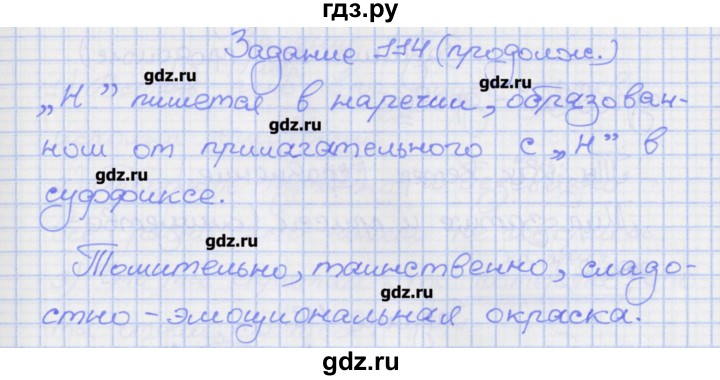 гдз.ру
Задание 114 (продолж.)
gdz.ru gdz.ru
„Н” пишется в наречии, образован-
gdz.ru
ном от прилагательного с „Н” в
gdz.ru gdz.ru
суффиксе.
gdz.ru
Томительно, таинственно, сладо-
gdz.ru
стно - эмоциональная окраска.
gdz.ru